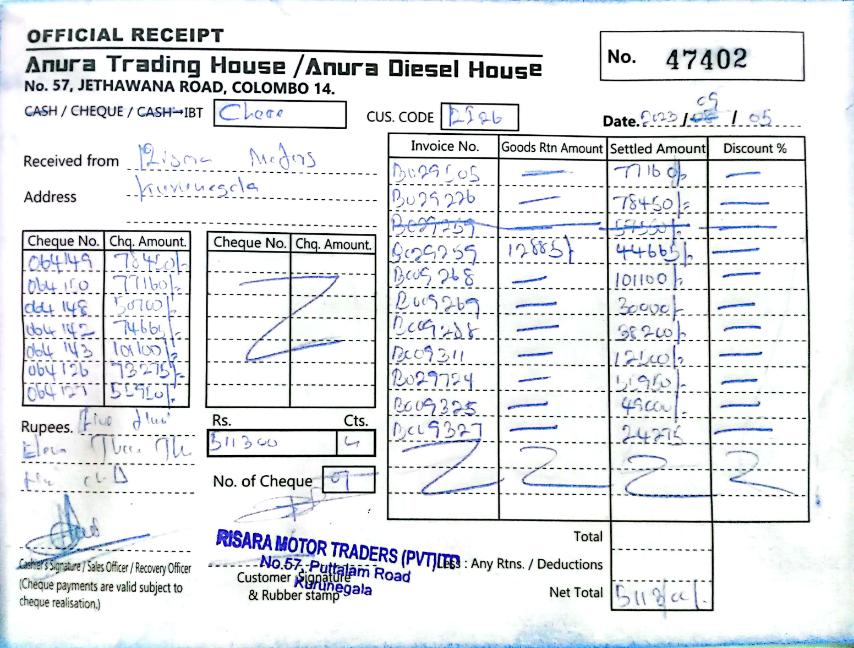 OFFICIAL RECEIPT
Anura Trading House / Anura Diesel House
No. 57, JETHAWANA ROAD, COLOMBO 14.
No. 47402
CASH / CHEQUE / CASH-IBT
CUS. CODE
Date. 2023 / 09 / 05
Received from Risara Motors
Address Kurunegala
Cheque No. Chq. Amount.
064149 78450/-
064150 77160/-
064148 50700/-
064142 74665/-
064143 101100/-
064126 73275/-
064127 55950/-
Cheque No. Chq. Amount.
Invoice No. Goods Rtn Amount Settled Amount Discount %
B029505 — 77160/- —
B029226 — 78450/- —
B029259 — 57550/- —
B029259 12885/- 44665/- —
B009268 — 101100/- —
B009269 — 30000/- —
— 38200/- —
B009311 — 12500/- —
B029724 — 55950/- —
B009325 — 49000/- —
B009327 — 24275 —
Rupees. Five
Eleven Thou Th
Rs. Cts.
511300
No. of Cheque 07
Cashier's Signature / Sales Officer / Recovery Officer
(Cheque payments are valid subject to
cheque realisation.)
RISARA MOTOR TRADERS (PVT) LTD
No.57, Puttalam Road
Kurunegala
Customer Signature
& Rubber stamp
Total
Less : Any Rtns. / Deductions
Net Total 511300/-